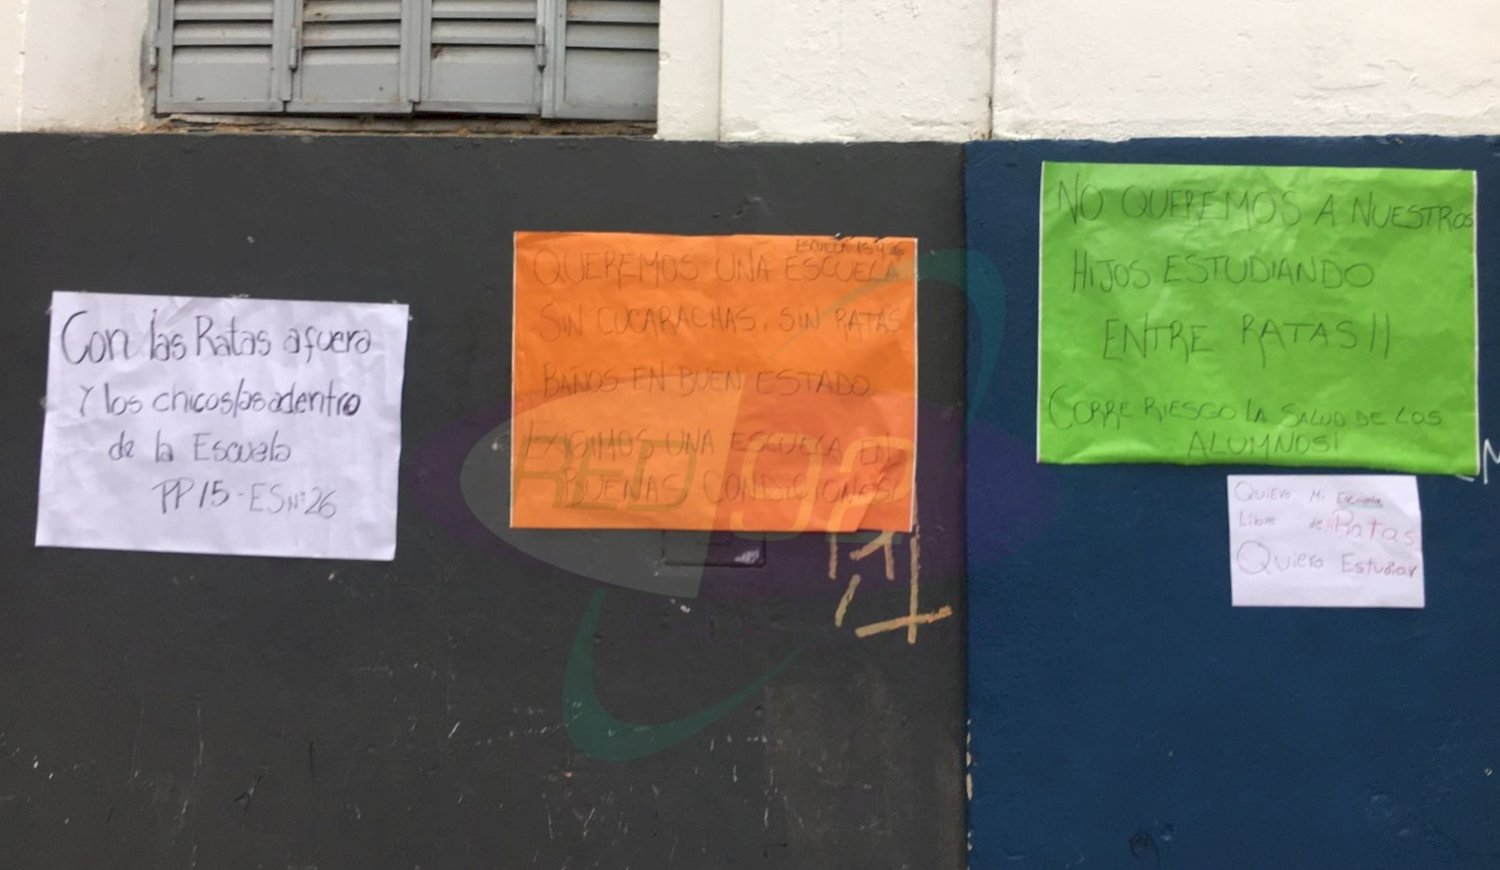 Con las Ratas afuera
Y los chicos/as adentro
de la Escuela
PP15 - ES Nº 26
ESCUELA 15 y 26
QUEREMOS UNA ESCUELA
SIN CUCARACHAS, SIN RATAS
BAÑOS EN BUEN ESTADO
EXIGIMOS UNA ESCUELA EN
BUENAS CONDICIONES!
RED 92
NO QUEREMOS A NUESTROS
HIJOS ESTUDIANDO
ENTRE RATAS!!
CORRE RIESGO LA SALUD DE LOS
ALUMNOS!
Quiero Mi Escuela
Libre de Ratas
Quiero Estudiar